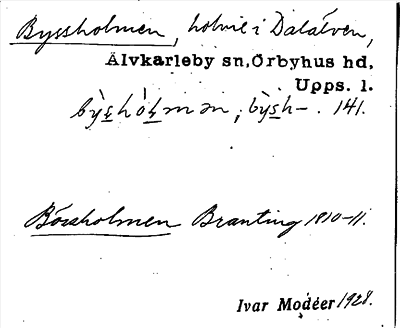 Byssholmen, holme i Dalälven,
Älvkarleby sn, Örbyhus hd,
Upps. l.
bỳshòlmən; bỳsh–. 141.
Bössholmen Branting 1810–11.
Ivar Modéer 1928.